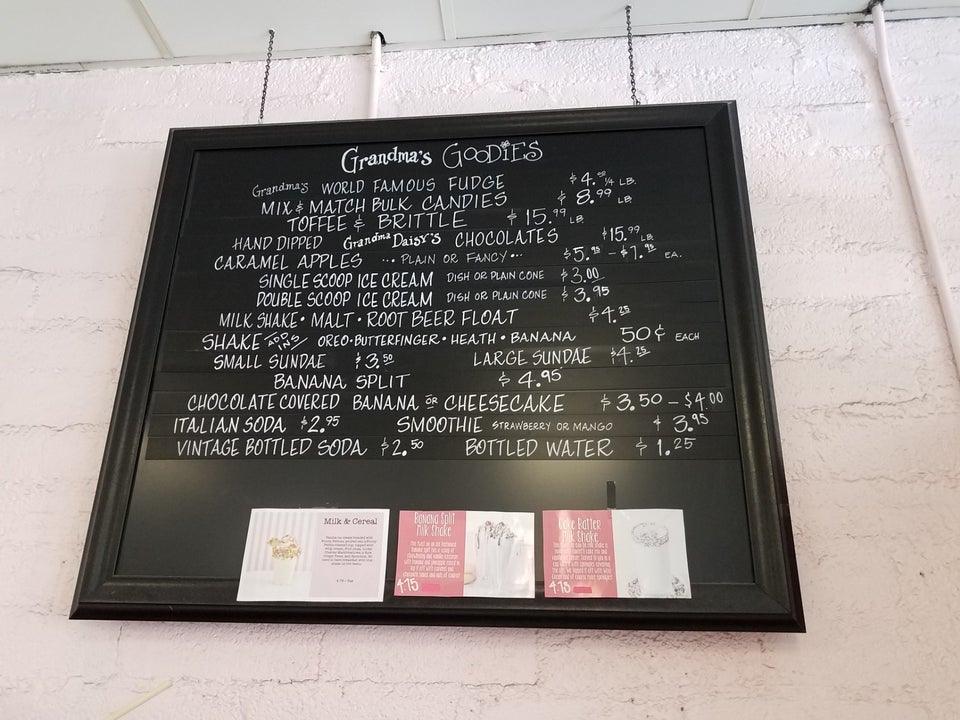 Grandma's GOODIES
Grandma's WORLD FAMOUS FUDGE $4.50 1/4 LB.
MIX & MATCH BULK CANDIES $8.99 LB.
TOFFEE & BRITTLE $15.99 LB
HAND DIPPED Grandma Daisy's CHOCOLATES $15.99 LB
CARAMEL APPLES ... PLAIN OR FANCY ... $5.95 - $7.95 EA.
SINGLE SCOOP ICE CREAM DISH OR PLAIN CONE $3.00
DOUBLE SCOOP ICE CREAM DISH OR PLAIN CONE $3.95
MILK SHAKE • MALT • ROOT BEER FLOAT $4.25
SHAKE ADD INS/ OREO • BUTTERFINGER • HEATH • BANANA 50¢ EACH
SMALL SUNDAE $3.50 LARGE SUNDAE $4.25
BANANA SPLIT $4.95
CHOCOLATE COVERED BANANA OR CHEESECAKE $3.50 - $4.00
ITALIAN SODA $2.95 SMOOTHIE STRAWBERRY OR MANGO $3.95
VINTAGE BOTTLED SODA $2.50 BOTTLED WATER $1.25
Milk & Cereal
Banana Split
Milk Shake
4.75
Cake Batter
Milk Shake
4.75